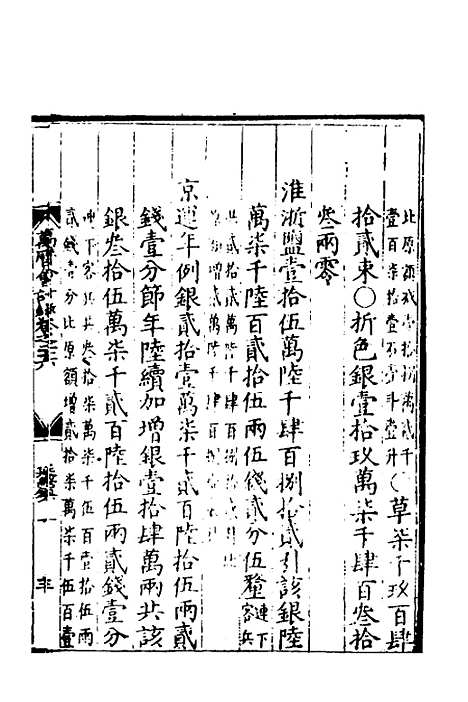 比原額減壹拾捌萬貳千
壹百柒拾壹石壹斗壹升○草柒千玖百肆
拾貳束○折色銀壹拾玖萬柒千肆百叁拾
叁兩零
淮浙鹽壹拾伍萬陸千肆百捌拾貳引該銀陸
萬柒千陸百貳拾伍兩伍錢貳分伍釐連下
客兵
京運年例銀貳拾壹萬柒千貳百陸拾伍兩貳
錢壹分節年陸續加增銀壹拾肆萬兩共該
銀叁拾伍萬柒千貳百陸拾伍兩貳錢壹分
連下客兵共叁拾柒萬柒千伍百壹拾伍兩
貳錢壹分比原額增貳拾柒萬柒千伍百壹
萬曆會計錄卷之